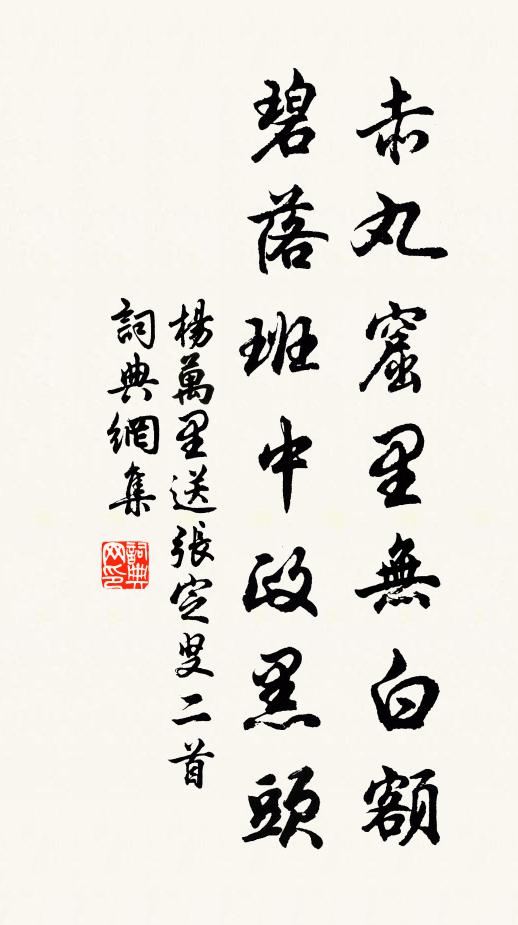 赤丸窟里無白額
碧落班中政黑頭
楊萬里送張定叟二首
詞典網集
詞典網印